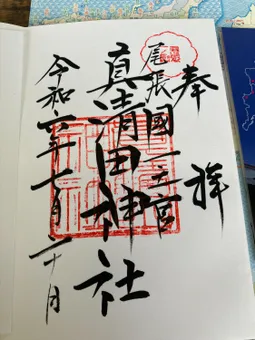 奉拝
尾張國一之宮
真清田神社
令和 年七月二十日